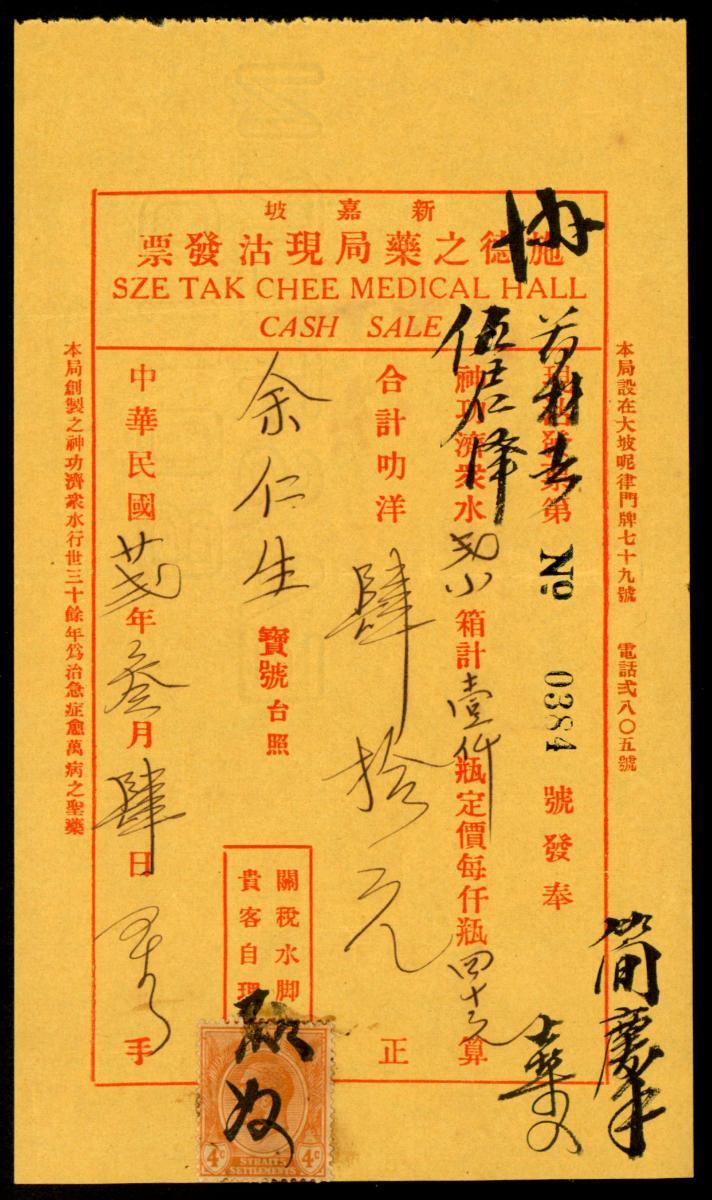 新嘉坡
施德之藥局現沽發票
SZE TAK CHEE MEDICAL HALL
CASH SALE
本局設在大坡呢律門牌七十九號 電話弍八〇五號
現沽發票第 Nº 0384 號發奉
神功濟衆水 小箱計壹仟瓶定價每仟瓶四十元算
合計叻洋肆拾元正
余仁生寶號台照
關稅水脚
貴客自理
中華民國廿弍年叁月肆日 手
本局創製之神功濟衆水行世三十餘年爲治急症愈萬病之聖藥
簡慶
4c STRAITS SETTLEMENTS 4c